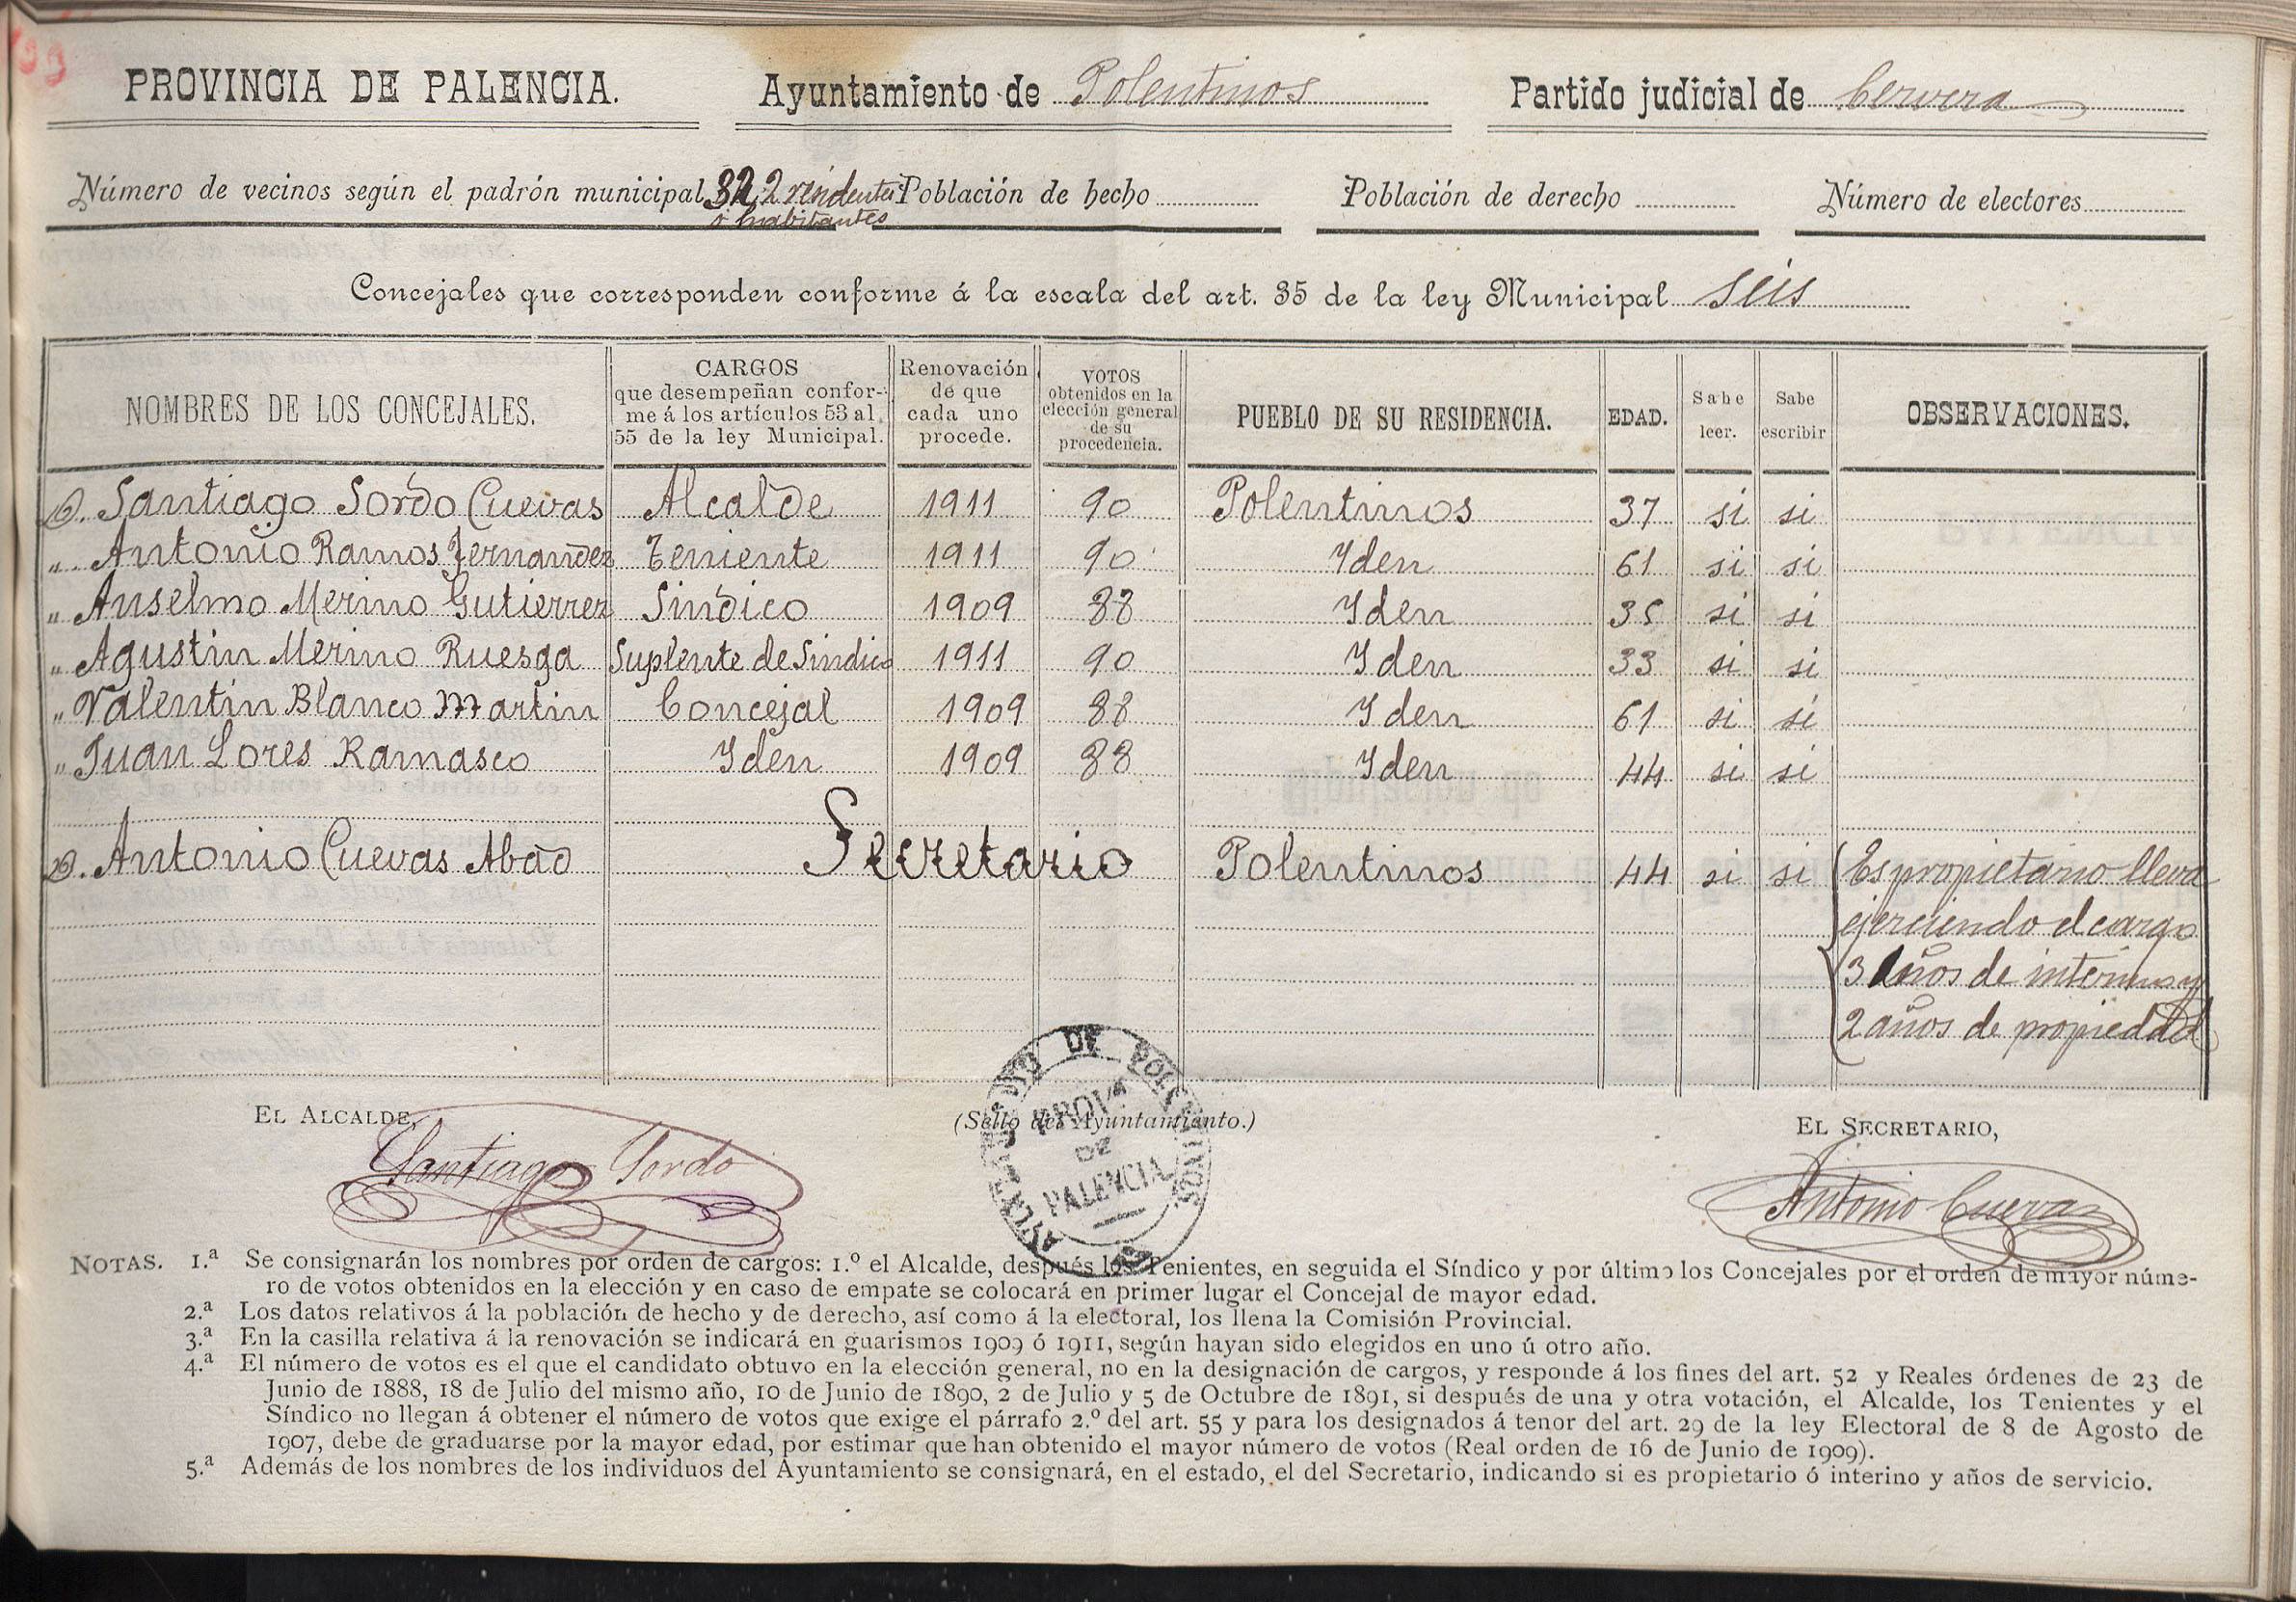 PROVINCIA DE PALENCIA. Ayuntamiento de Polentinos Partido judicial de Cervera
Número de vecinos según el padrón municipal 322 residentes Población de hecho Población de derecho Número de electores
o habitantes
Concejales que corresponden conforme á la escala del art. 35 de la ley Municipal seis
NOMBRES DE LOS CONCEJALES.
CARGOS
que desempeñan confor-
me á los artículos 53 al
55 de la ley Municipal.
Renovación
de que
cada uno
procede.
VOTOS
obtenidos en la
elección general
de su
procedencia.
PUEBLO DE SU RESIDENCIA.
EDAD.
Sabe
leer.
Sabe
escribir
OBSERVACIONES.
D. Santiago Sordo Cuevas Alcalde 1911 90 Polentinos 37 si si
„ Antonio Ramos Fernandez Teniente 1911 90 Iden 61 si si
„ Anselmo Merino Gutierrez Sindico 1909 88 Iden 35 si si
„ Agustin Merino Ruesga Suplente de Sindico 1911 90 Iden 33 si si
„ Valentin Blanco Martin Concejal 1909 88 Iden 61 si si
„ Juan Lores Ramasco Iden 1909 88 Iden 44 si si
D. Antonio Cuevas Abad Secretario Polentinos 44 si si Es propietario lleva
ejerciendo el cargo
3 años de interino y
2 años de propiedad
EL ALCALDE,
Santiago Sordo
(Sello del Ayuntamiento.)
AYUNTAMIENTO DE POLENTINOS
PROVª
DE
PALENCIA
EL SECRETARIO,
Antonio Cuevas
NOTAS. 1.ª Se consignarán los nombres por orden de cargos: 1.º el Alcalde, después los Tenientes, en seguida el Síndico y por último los Concejales por el orden de mayor núme-
ro de votos obtenidos en la elección y en caso de empate se colocará en primer lugar el Concejal de mayor edad.
2.ª Los datos relativos á la población de hecho y de derecho, así como á la electoral, los llena la Comisión Provincial.
3.ª En la casilla relativa á la renovación se indicará en guarismos 1909 ó 1911, según hayan sido elegidos en uno ú otro año.
4.ª El número de votos es el que el candidato obtuvo en la elección general, no en la designación de cargos, y responde á los fines del art. 52 y Reales órdenes de 23 de
Junio de 1888, 18 de Julio del mismo año, 10 de Junio de 1890, 2 de Julio y 5 de Octubre de 1891, si después de una y otra votación, el Alcalde, los Tenientes y el
Síndico no llegan á obtener el número de votos que exige el párrafo 2.º del art. 55 y para los designados á tenor del art. 29 de la ley Electoral de 8 de Agosto de
1907, debe de graduarse por la mayor edad, por estimar que han obtenido el mayor número de votos (Real orden de 16 de Junio de 1909).
5.ª Además de los nombres de los individuos del Ayuntamiento se consignará, en el estado, el del Secretario, indicando si es propietario ó interino y años de servicio.